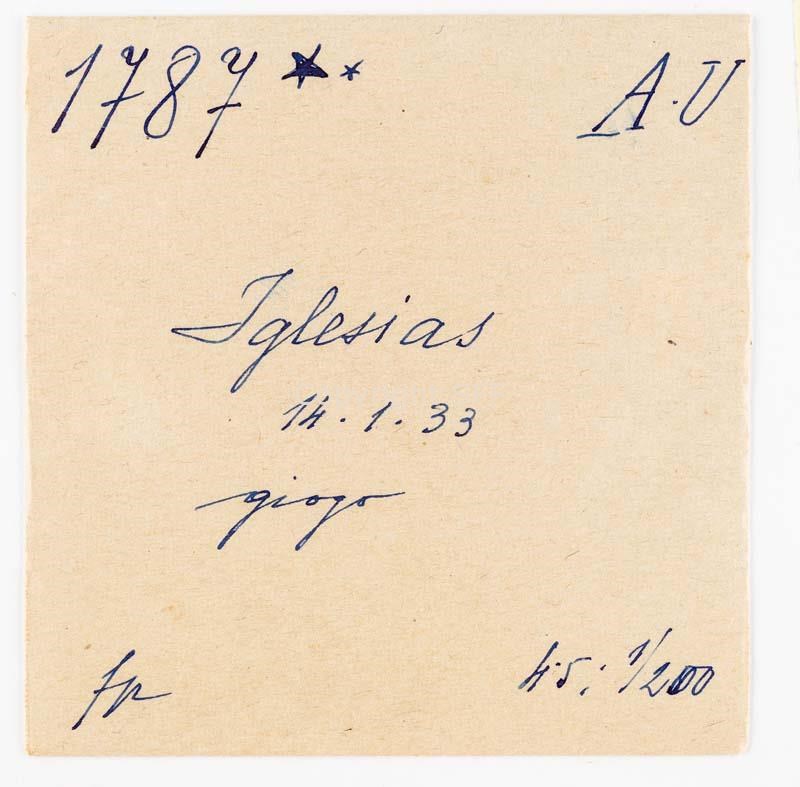 1787 ★ ★ A.U
Iglesias
14.1.33
giogo
fp 4.5; 1/200